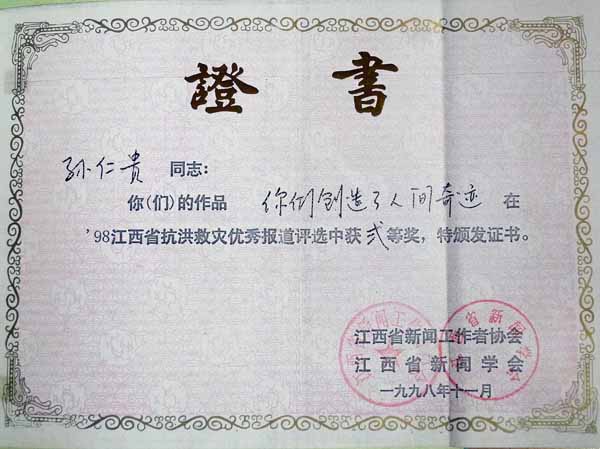 證書
孙仁贵 同志：
你(们)的作品 你们创造了人间奇迹 在
'98江西省抗洪救灾优秀报道评选中获弍等奖，特颁发证书。
江西省新闻工作者协会
江西省新闻学会
一九九八年十一月